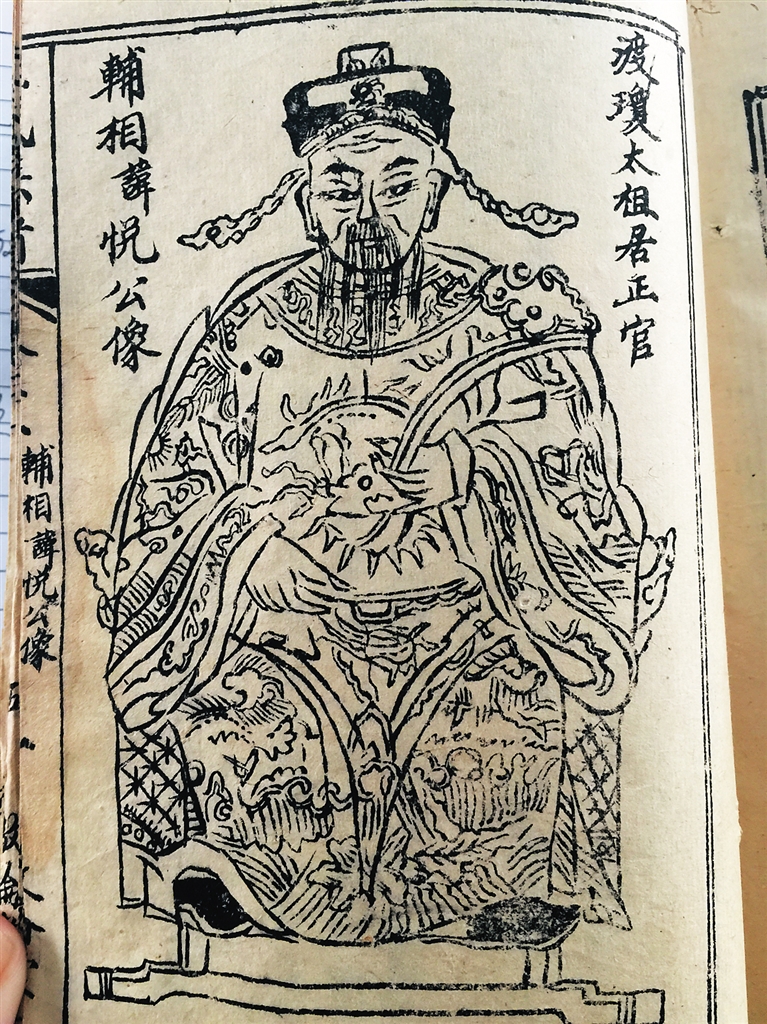 渡瓊太祖居正官
輔相諱悅公像
輔相諱悅公像